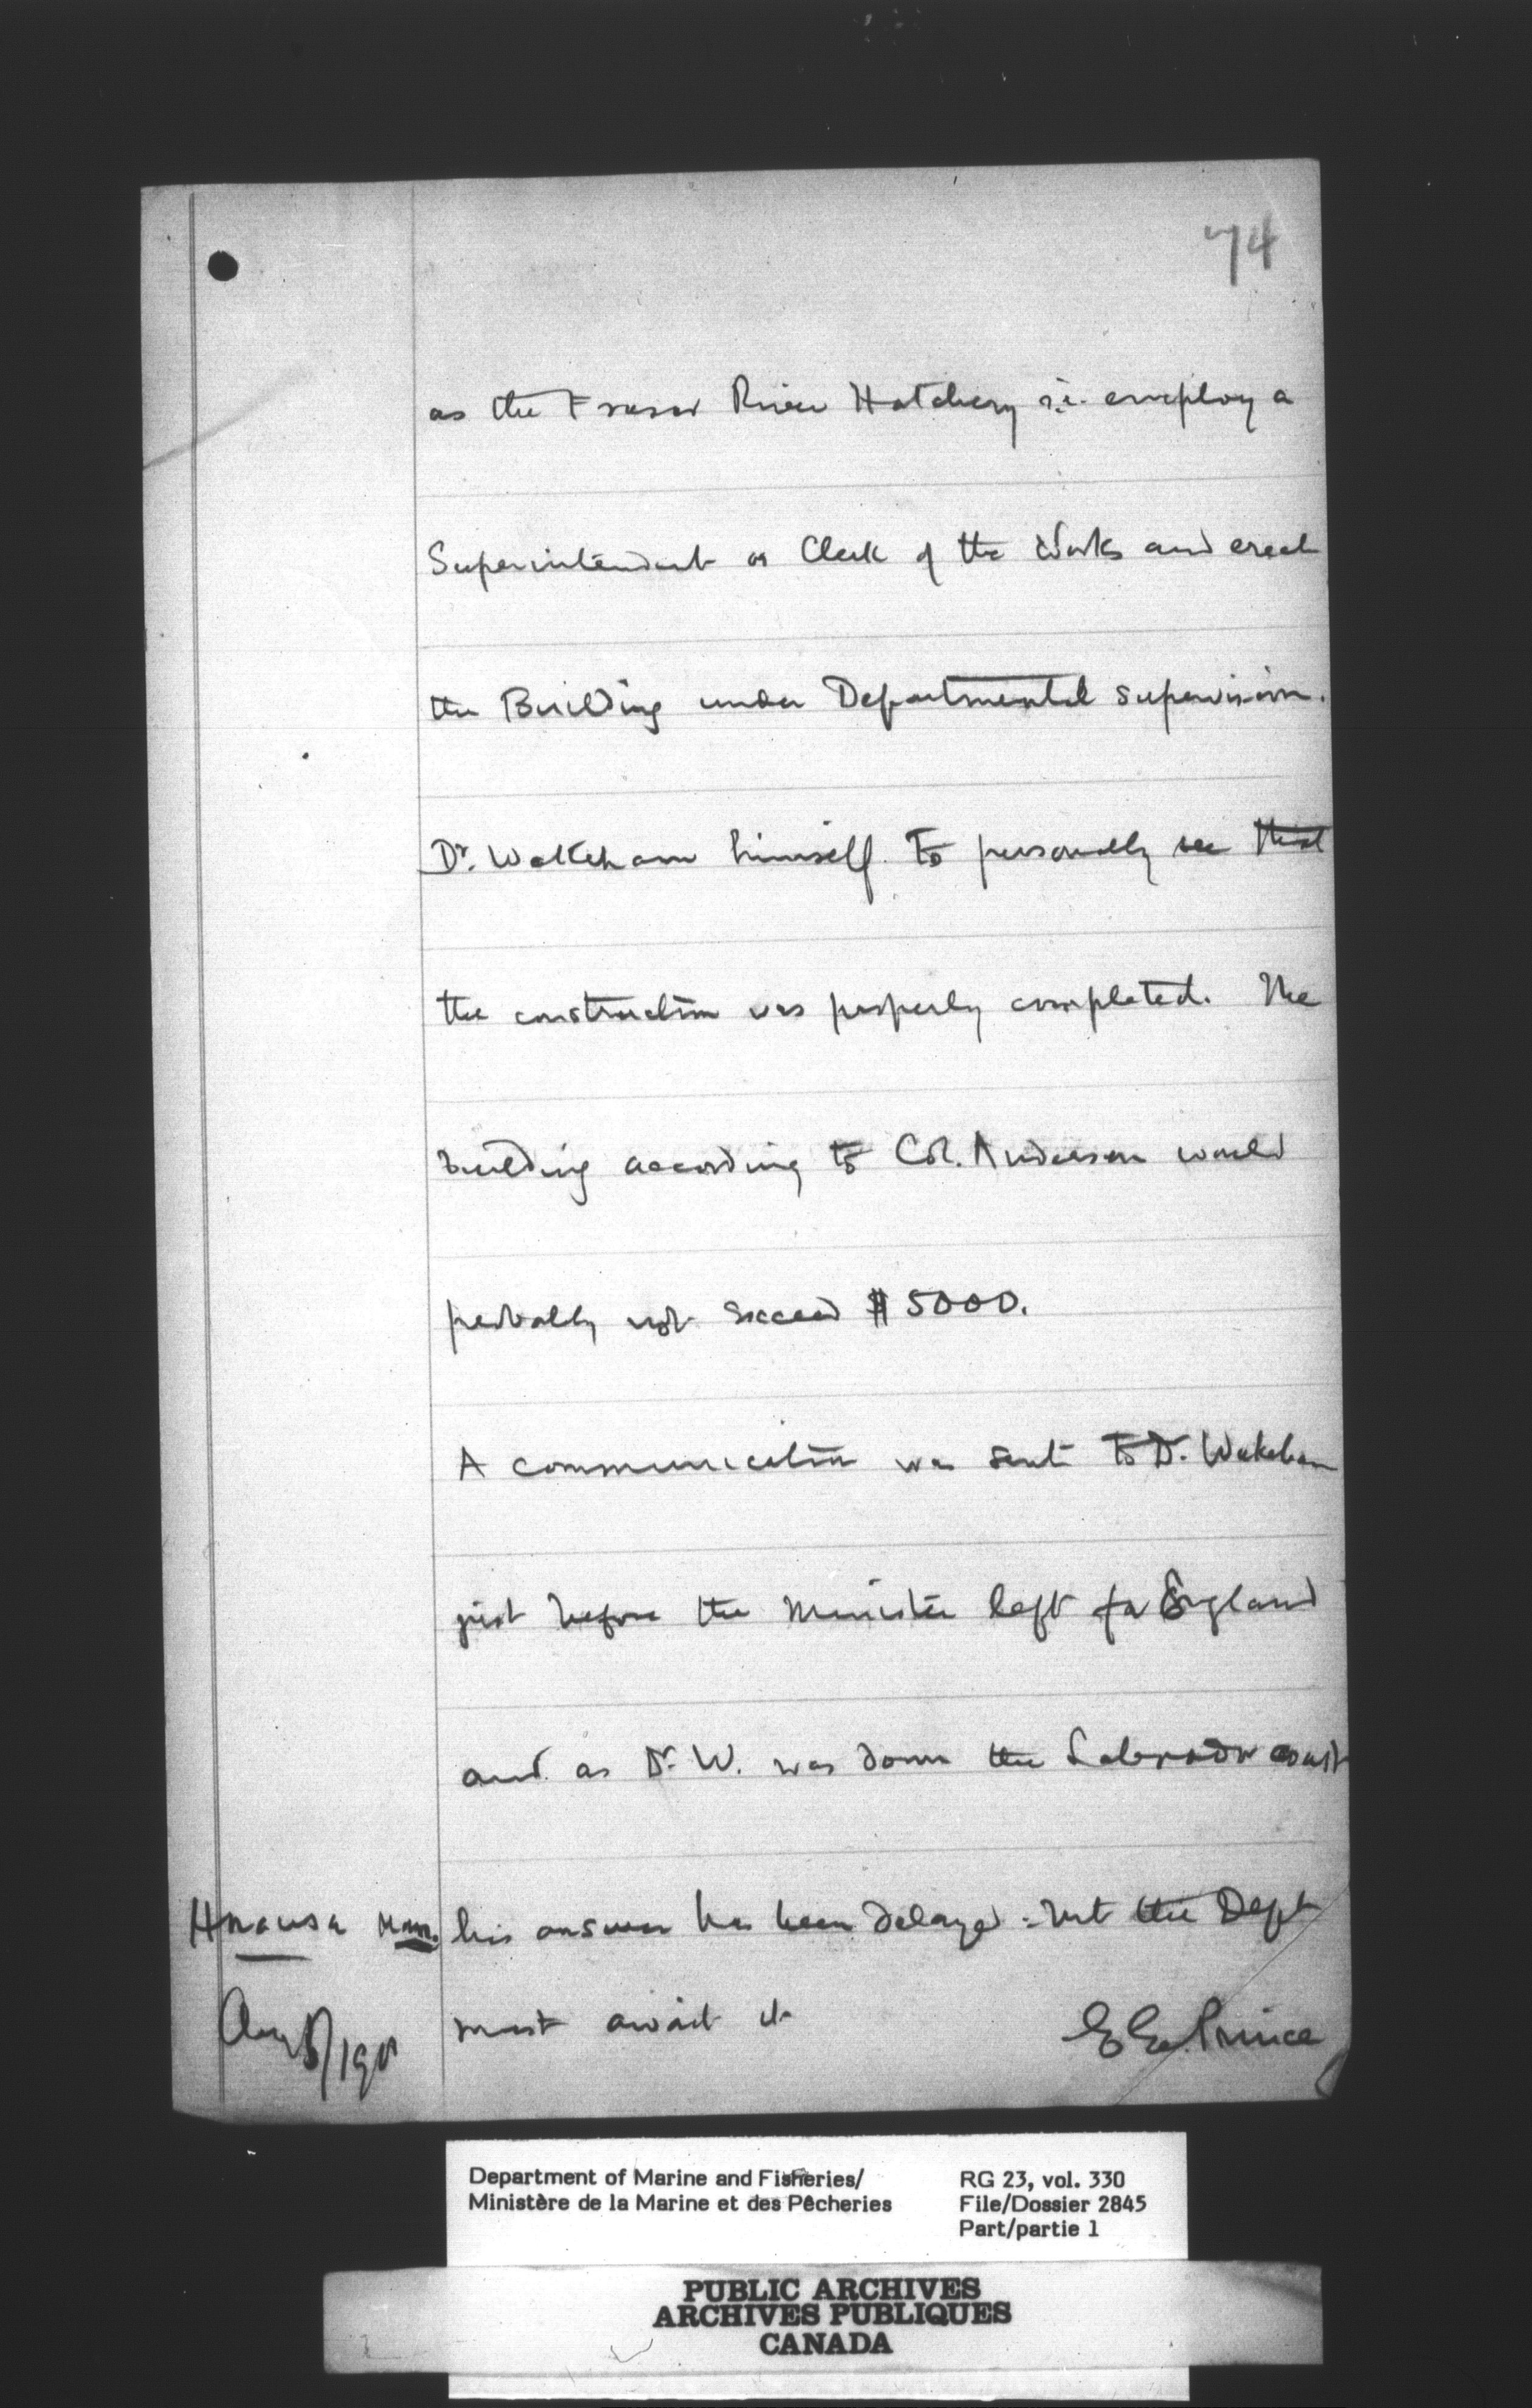 74
as the Fraser River Hatchery i.e. employ a
Superintendent or Clerk of the Works and erect
the Building under Departmental supervision.
Dr. Wakeham himself to personally see that
the construction was properly completed. The
building according to Col. Anderson would
probably not exceed $5000.
A communication was sent to Dr. Wakeham
just before the Minister left for England
and as Dr. W. was down the Labrador coast
his answer has been delayed : but the Dept
must await it
E E Prince
Hnausa Man.
Aug
Department of Marine and Fisheries/
Ministère de la Marine et des Pêcheries
RG 23, vol. 330
File/Dossier 2845
Part/partie 1
PUBLIC ARCHIVES
ARCHIVES PUBLIQUES
CANADA